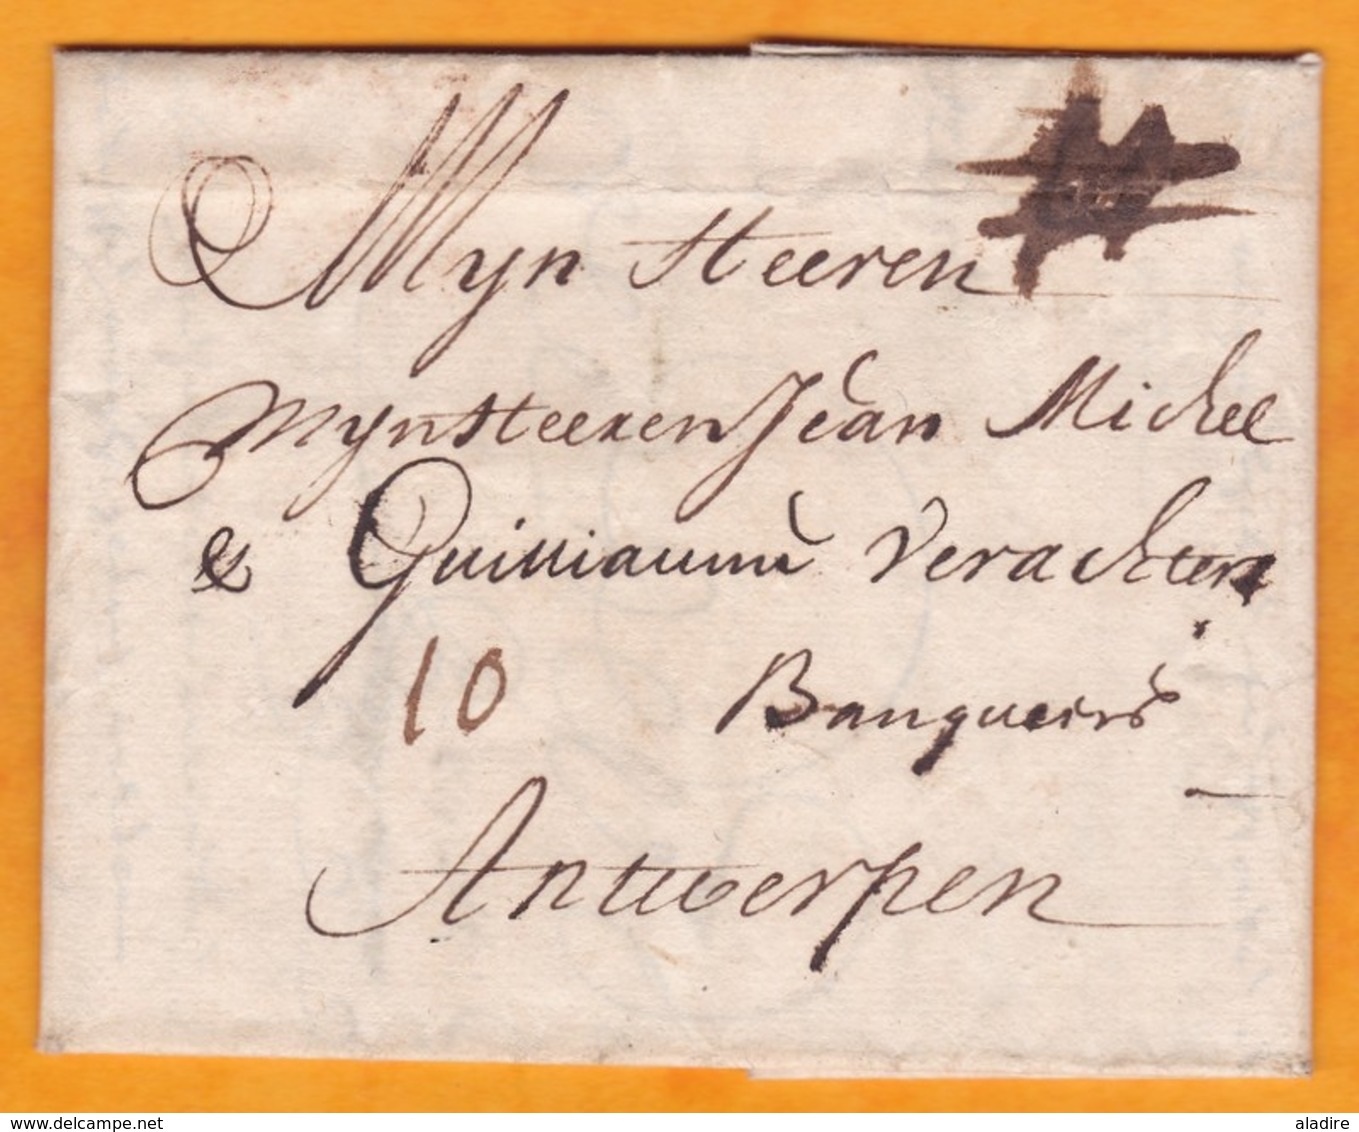 Myn Heeren
Myn Heeren Jean Michee
& Guilliaume Verachten
10 Banquiers
Antwerpen
delcampe.net
aladire